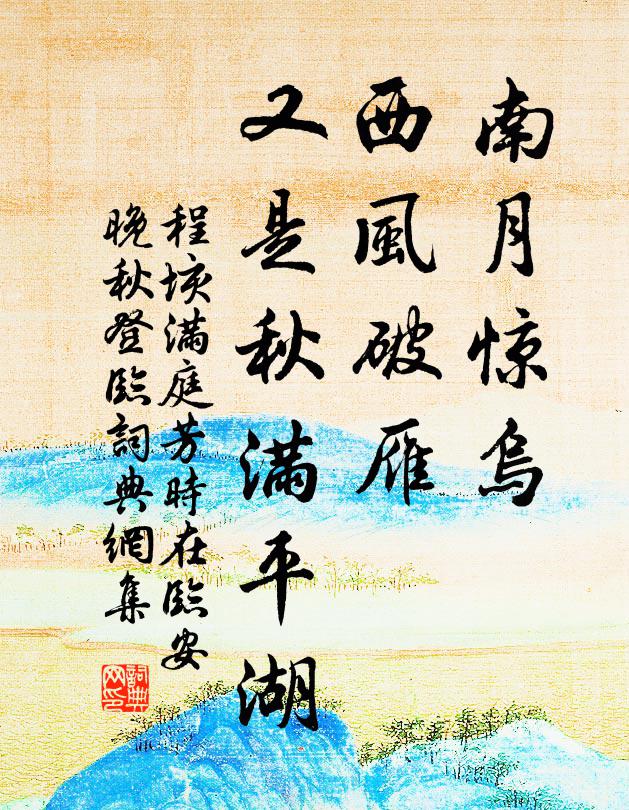 南月惊烏
西風破雁
又是秋满平湖
程垓满庭芳時在臨安
晚秋登臨詞典網集
詞典网印